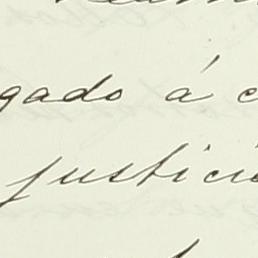 gado á c
justici